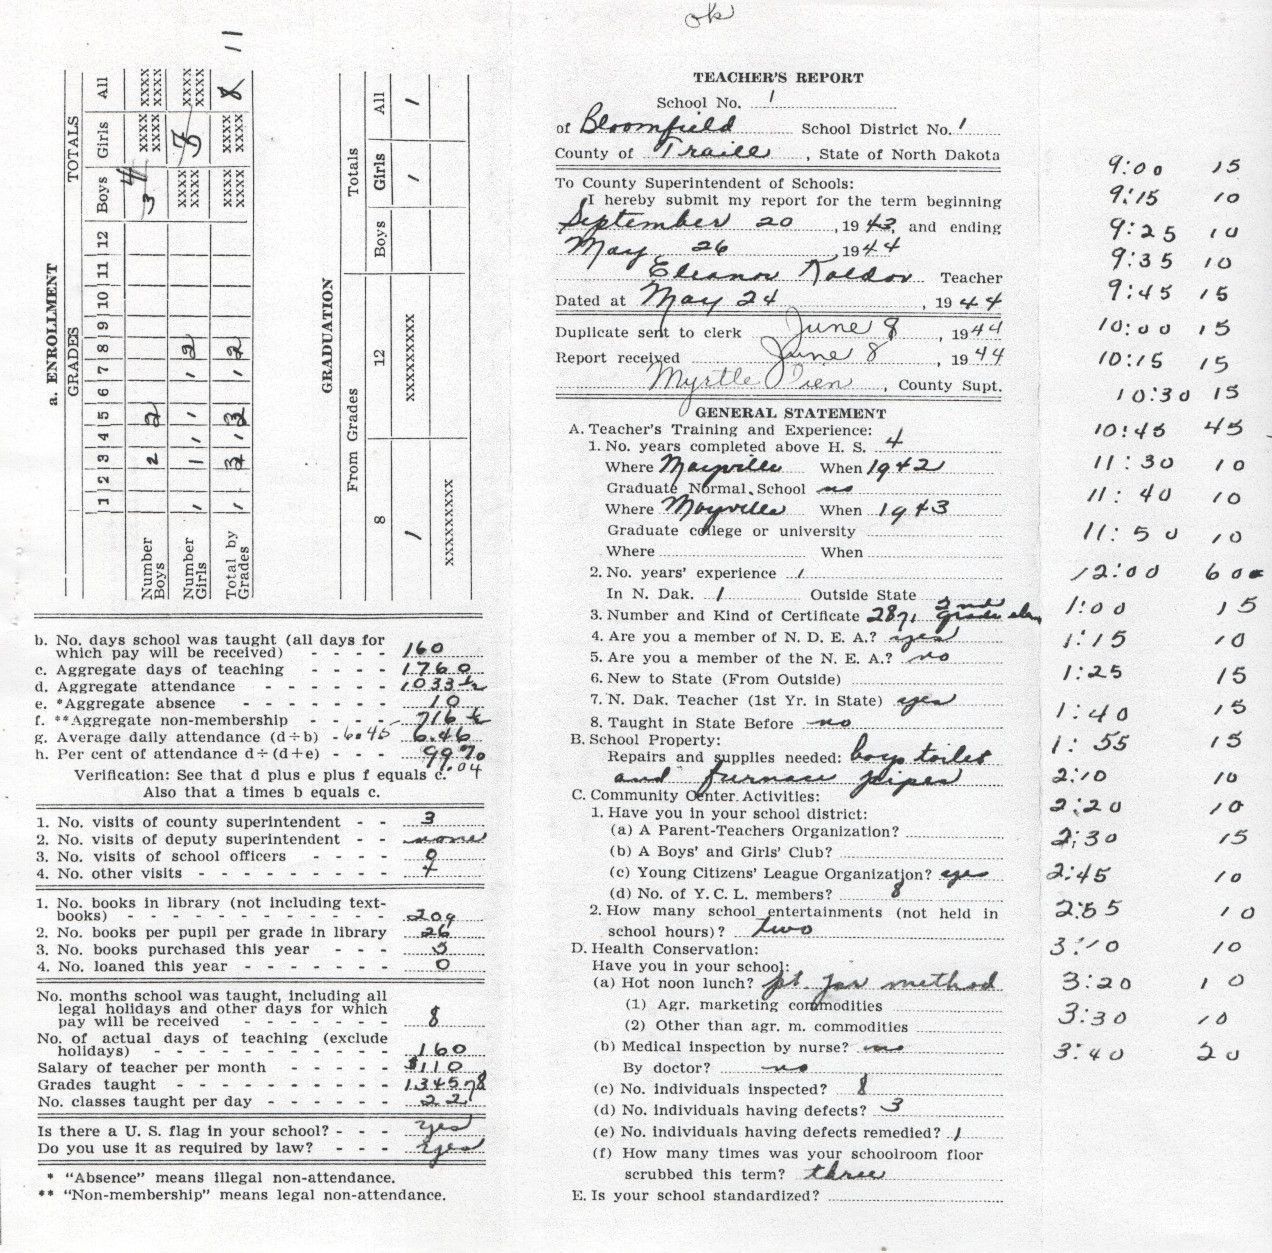 ok
TEACHER'S REPORT
School No. 1
of Bloomfield School District No. 1
County of Traill, State of North Dakota
To County Superintendent of Schools:
I hereby submit my report for the term beginning
September 20, 1943, and ending
May 26 1944
Eleanor Kaldor Teacher
Dated at May 24, 1944
Duplicate sent to clerk June 8, 1944
Report received June 8, 1944
Myrtle Oien, County Supt.
GENERAL STATEMENT
A. Teacher's Training and Experience:
1. No. years completed above H. S. 4
Where Mayville When 1942
Graduate Normal School no
Where Mayville When 1943
Graduate college or university
Where When
2. No. years' experience 1
In N. Dak. 1 Outside State
3. Number and Kind of Certificate 2871 2nd grade elem
4. Are you a member of N. D. E. A.? yes
5. Are you a member of the N. E. A.? no
6. New to State (From Outside)
7. N. Dak. Teacher (1st Yr. in State) yes
8. Taught in State Before no
B. School Property:
Repairs and supplies needed: boys toilet
and furnace pipes
C. Community Center Activities:
1. Have you in your school district:
(a) A Parent-Teachers Organization?
(b) A Boys' and Girls' Club?
(c) Young Citizens' League Organization? yes
(d) No. of Y. C. L. members? 8
2. How many school entertainments (not held in
school hours)? two
D. Health Conservation:
Have you in your school:
(a) Hot noon lunch? pt. jar method
(1) Agr. marketing commodities
(2) Other than agr. m. commodities
(b) Medical inspection by nurse? no
By doctor? no
(c) No. individuals inspected? 8
(d) No. individuals having defects? 3
(e) No. individuals having defects remedied? 1
(f) How many times was your schoolroom floor
scrubbed this term? three
E. Is your school standardized?
a. ENROLLMENT
GRADES TOTALS
1 2 3 4 5 6 7 8 9 10 11 12 Boys Girls All
Number Boys 2 2 3 4 XXXX XXXX XXXX XXXX
Number Girls 1 1 1 1 1 2 XXXX XXXX XXXX XXXX
Total by Grades 1 3 1 3 1 2 XXXX XXXX XXXX XXXX 8 11
GRADUATION
From Grades Totals
8 12 Boys Girls All
1 XXXXXXXXX 1 1
XXXXXXXXX
b. No. days school was taught (all days for
which pay will be received) - - - - 160
c. Aggregate days of teaching - - - - 1760
d. Aggregate attendance - - - - - - 1033½
e. *Aggregate absence - - - - - - 10
f. **Aggregate non-membership - - - - 716½
g. Average daily attendance (d÷b) - 6.45 6.46
h. Per cent of attendance d÷(d+e) - - - 99%
99.04
Verification: See that d plus e plus f equals c.
Also that a times b equals c.
1. No. visits of county superintendent - - 3
2. No. visits of deputy superintendent - - none
3. No. visits of school officers - - - - 0
4. No. other visits - - - - - - - -
1. No. books in library (not including text-
books) - - - - - - - - - - - 209
2. No. books per pupil per grade in library 26
3. No. books purchased this year - - - 5
4. No. loaned this year - - - - - - - 0
No. months school was taught, including all
legal holidays and other days for which
pay will be received - - - - - - - 8
No. of actual days of teaching (exclude
holidays) - - - - - - - - - - 160
Salary of teacher per month - - - - - $110
Grades taught - - - - - - - - - 134578
No. classes taught per day - - - - - - 22
Is there a U. S. flag in your school? - - - yes
Do you use it as required by law? - - - yes
* "Absence" means illegal non-attendance.
** "Non-membership" means legal non-attendance.
9:00 15
9:15 10
9:25 10
9:35 10
9:45 15
10:00 15
10:15 15
10:30 15
10:45 45
11:30 10
11:40 10
11:50 10
12:00 60
1:00 15
1:15 10
1:25 15
1:40 15
1:55 15
2:10 10
2:20 10
2:30 15
2:45 10
2:55 10
3:10 10
3:20 10
3:30 10
3:40 20